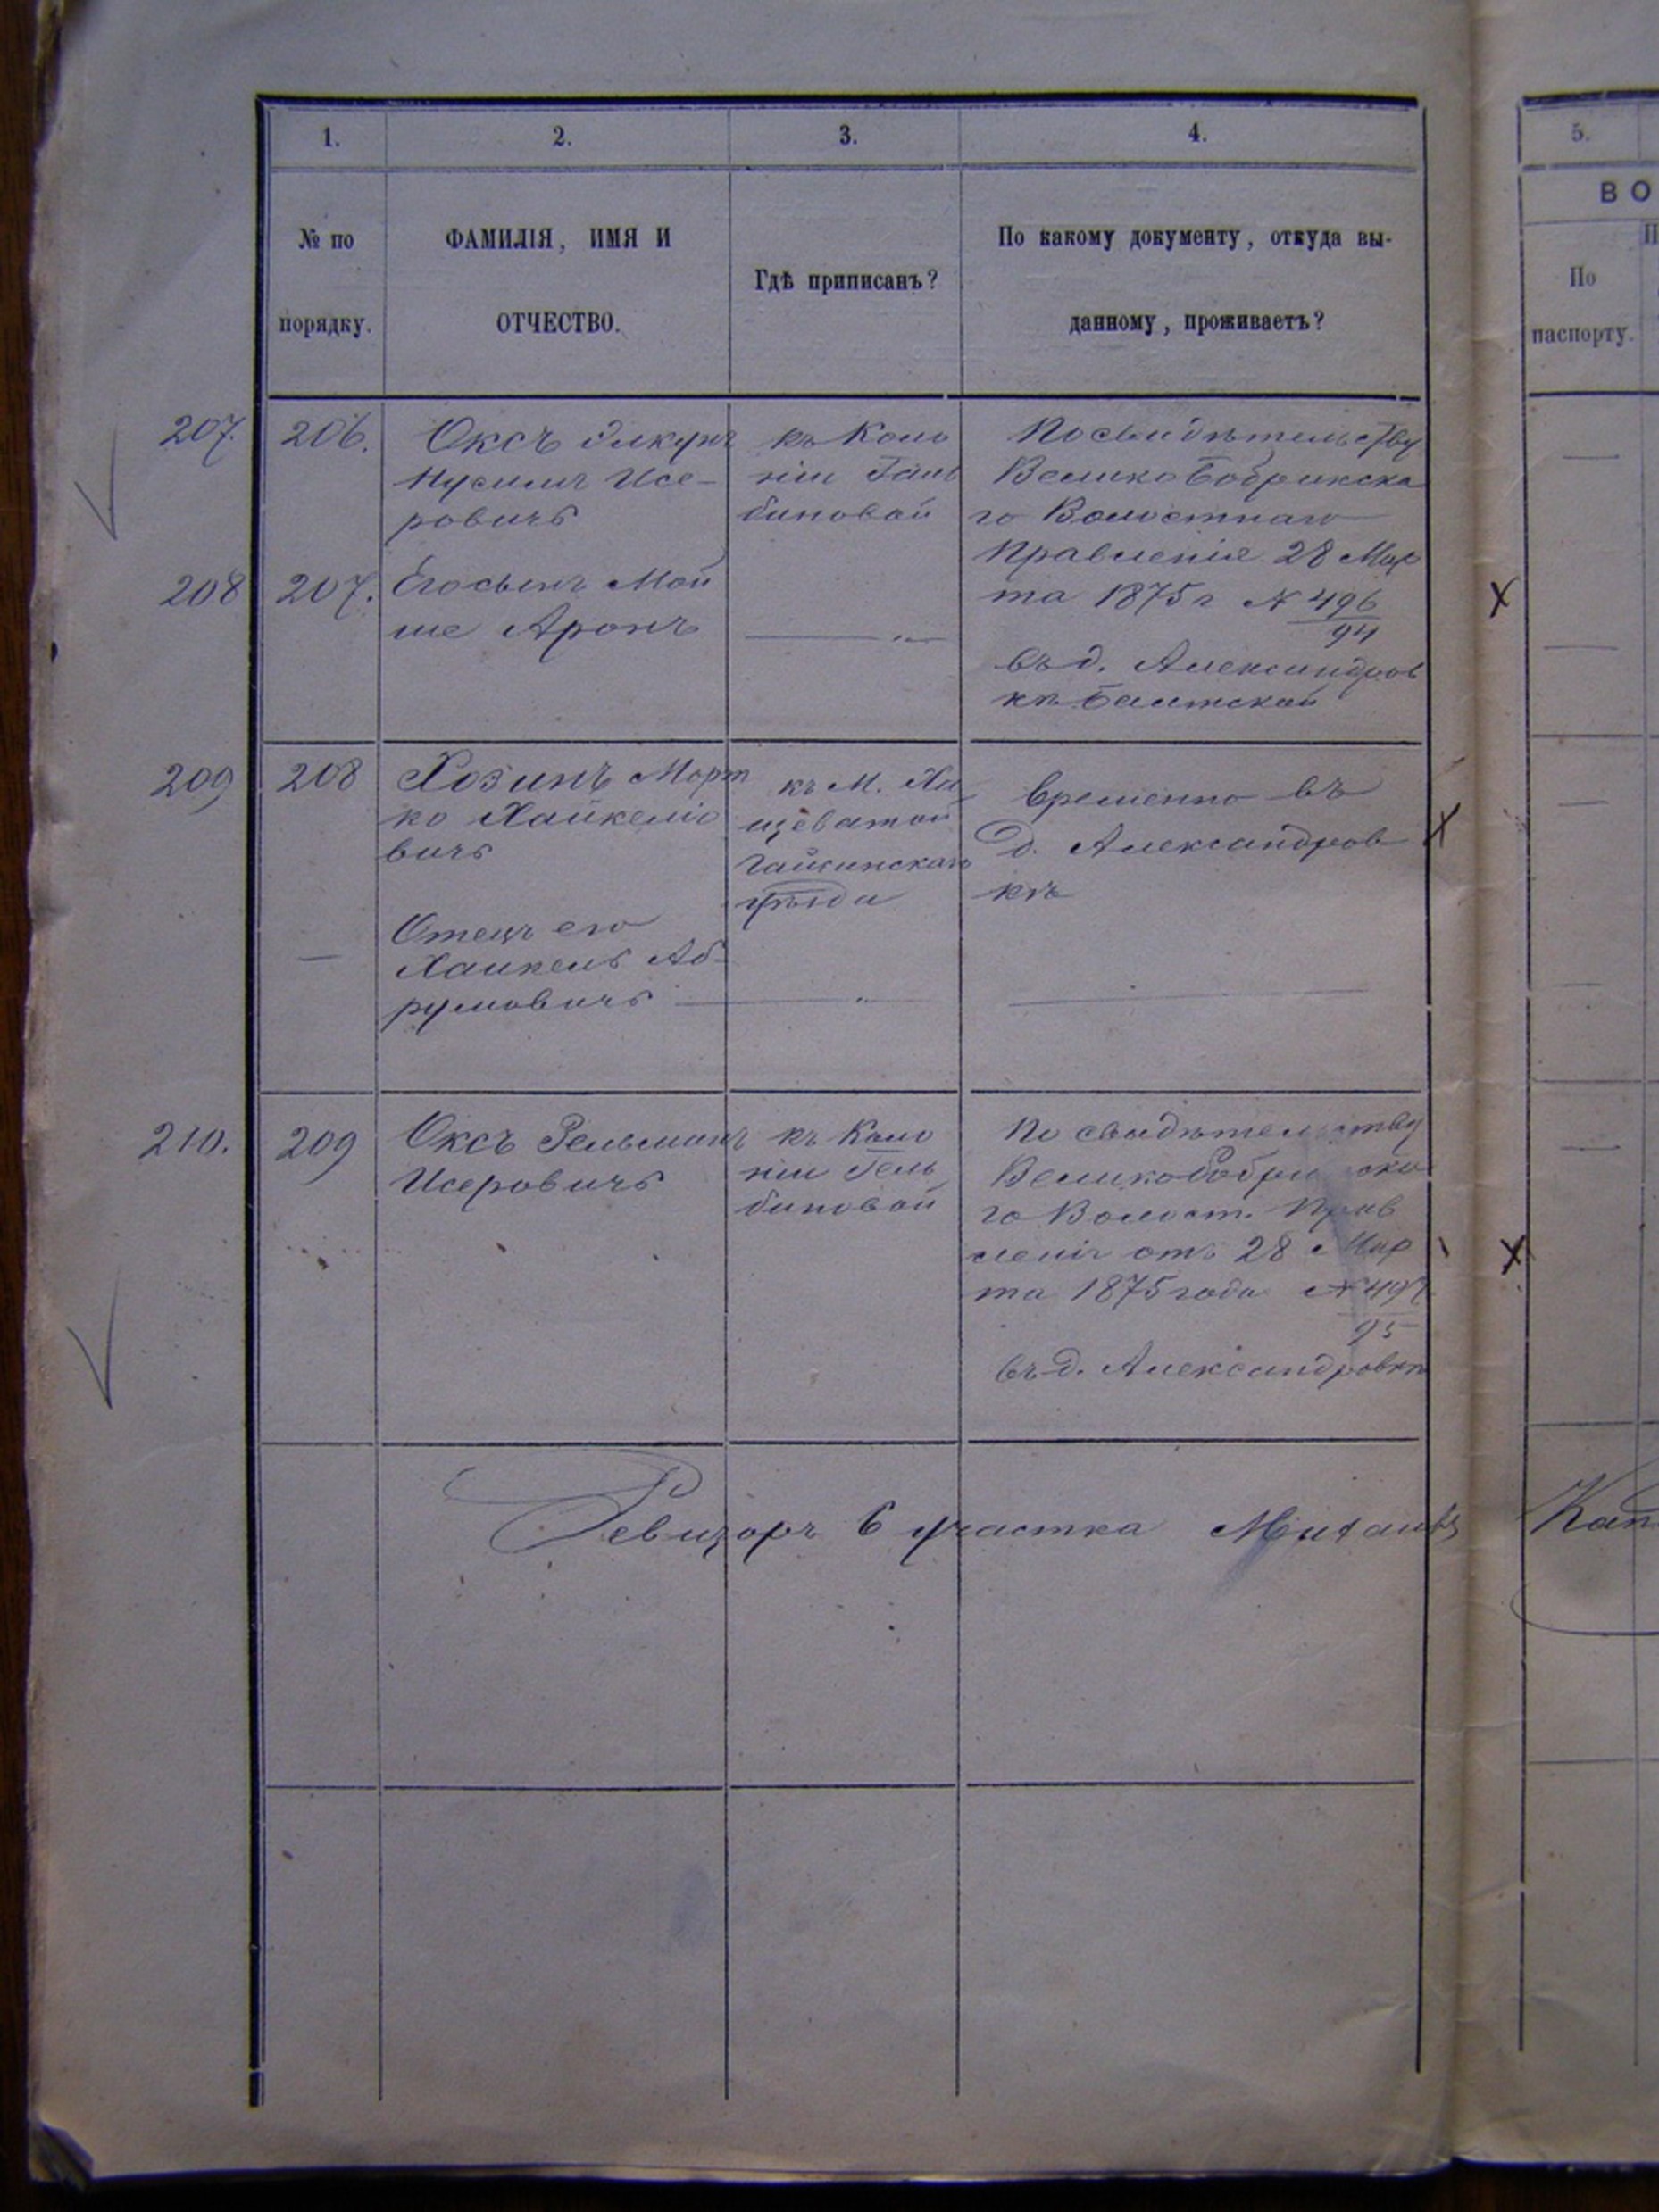 1. 2. 3. 4. 5.
№ по порядку.
ФАМИЛІЯ, ИМЯ И
ОТЧЕСТВО.
Гдѣ приписанъ?
По какому документу, откуда вы-
данному, проживаетъ?
ВО
По
паспорту.
207. 206.
Оксъ
Нусимъ Исе-
ровичъ
къ Коло
ніи
биновой
По свидѣтельству
Великобобрикска
го Волостнаго
Правленія 28 Мар
та 1875 г № 496
94
въ д. Александров
кѣ Балтской
208 207.
Его сынъ Мой
ше Аронъ
209 208
Хозинъ Морт
ко Хайкелiо
вичъ
къ М. Хо
щеватой
Гайсинскаго
уѣзда
временно въ
д. Александров
кѣ
Отецъ его
Хаикель Аб-
румовичъ
210. 209
Оксъ Зельманъ
Исеровичъ
къ Коло
ніи Гель
биновой
По свидѣтельству
Великобобрикска
го Волост. Прав
ленія отъ 28 Мар
та 1875 года № 497
95
въ д. Александровкѣ
Ревизоръ 6 участка